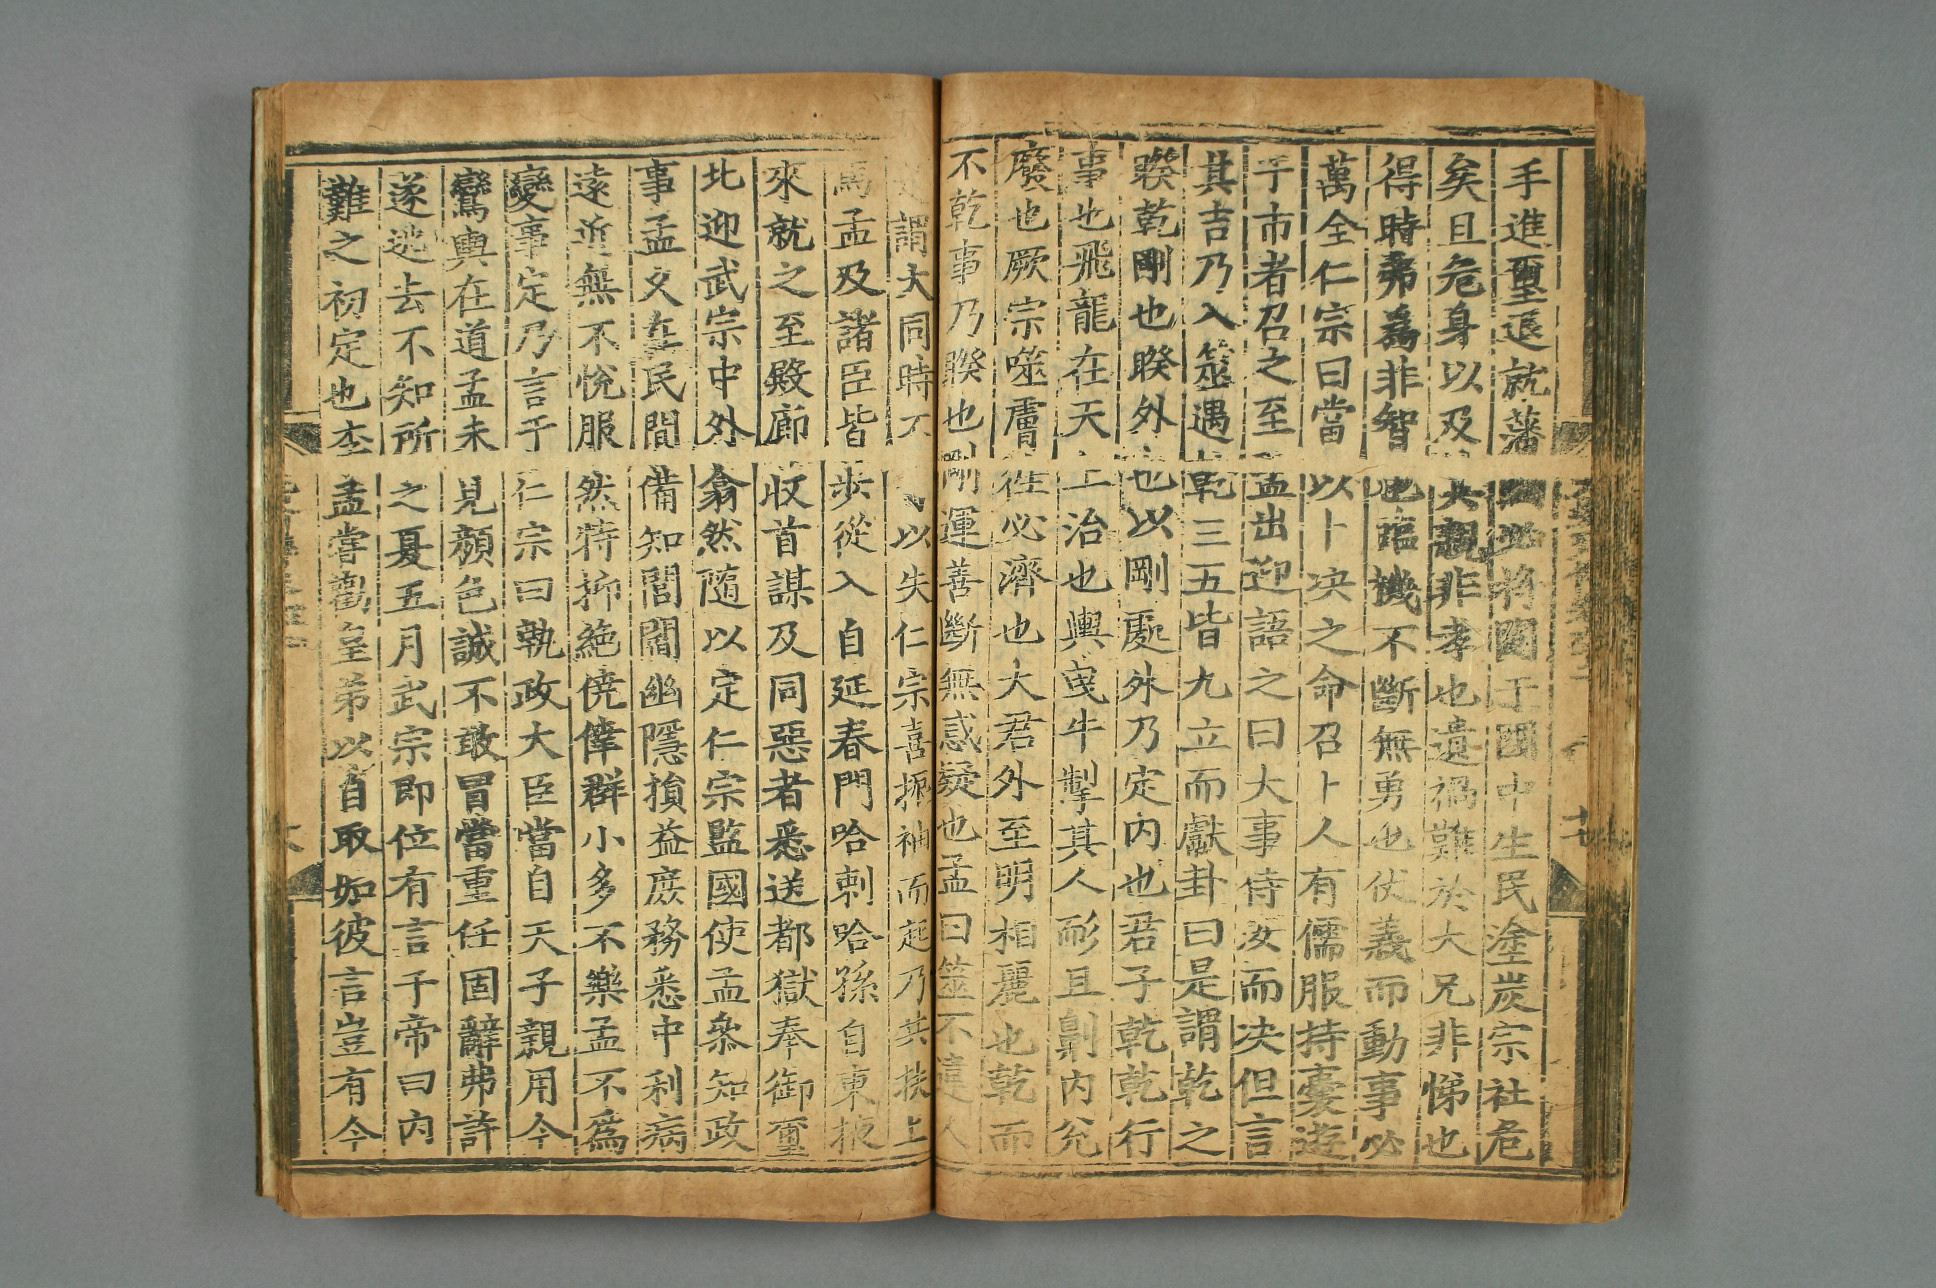 手進璽退就藩國必將鬬于國中生民塗炭宗社危
矣且危身以及其親非孝也遺禍難於大兄非悌也
得時弗為非智也臨機不斷無勇也仗義而動事必
萬全仁宗曰當以卜决之命召卜人有儒服持囊遊
于市者召之至孟出迎語之曰大事待汝而决但言
其吉乃入筮遇乾三五皆九立而獻卦曰是謂乾之
睽乾剛也睽外也以剛處外乃定內也君子乾乾行
事也飛龍在天上治也輿曳牛掣其人而彡且劓內兌
廢也厥宗噬膚往必濟也大君外至明相麗也乾而
不乾事乃睽也剛運善斷無惑疑也孟曰筮不違人
是謂大同時不可以失仁宗喜振袖而起乃共扶上
馬孟及諸臣皆步從入自延春門哈刺哈孫自東掖
來就之至殿廊收首謀及同惡者悉送都獄奉御璽
北迎武宗中外翕然隨以定仁宗監國使孟叅知政
事孟久在民間備知閭閻幽隱損益庶務悉中利病
遠近無不悅服然特抑絶僥倖群小多不樂孟不為
變事定乃言于仁宗曰執政大臣當自天子親用今
鸞輿在道孟未見顏色誠不敢冒當重任固辭弗許
遂逃去不知所之夏五月武宗即位有言于帝曰內
難之初定也李孟嘗勸皇弟以自取如彼言豈有今